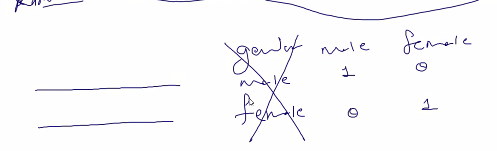 gender male female
male 1 0
female 0 1